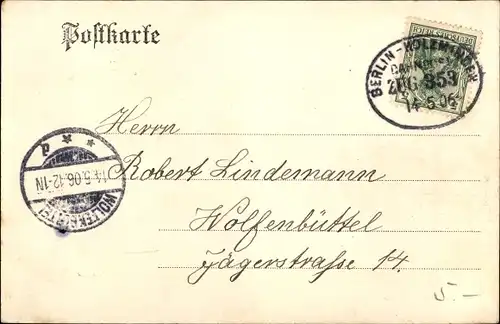 Postkarte
BERLIN-HOLZMINDEN
ZUG 353
14.5.06
Herrn
Robert Lindemann
Wolfenbüttel
Jägerstrasse 14.
14.5.06.12-1N
5.-